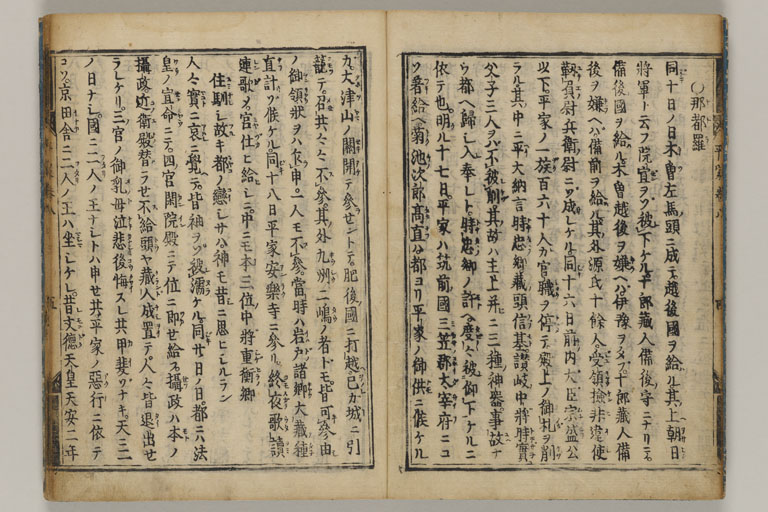 ○那都羅
同十日ノ日木曽左馬頭ニ成テ越後國ヲ給ル其上朝日
將軍ト云フ院宣ヲソ被下ケル十郎藏人備後守ニナリニケリ
備後國ヲ給ル木曽越後ヲ嫌ヘハ伊豫ヲタフ十郎藏人備
後ヲ嫌ヘハ備前ヲ給ル其外源氏十餘人受領檢非違使
靱負尉兵衛尉ニソ成レケル同十六日前内大臣宗盛公
以下平家ノ一族百六十人カ官職ヲ停テ殿上ノ御札ヲ削
ラル其中ニ平大納言時忠卿藏頭信基讃岐中將時實
父子三人ヲハ不被削其故ハ主上并ニ三種神器事故ナ
ウ都ヘ歸シ入奉レト時忠卿ノ許ヘ度々被仰下ケルニ
依テ也明ル十七日平家ハ筑前國三笠郡太宰府ニコ
ソ著給ヘ菊池次郎髙直ハ都ヨリ平家ノ御供ニ候ケル
カ大津山ノ關開テ參セントテ肥後國ニ打越己カ城ニ引
籠テ召共々々不參其外九州二嶋ノ者トモ皆可參由
ノ御領狀ヲハ乍申一人モ不參當時ハ岩戸諸卿大藏種
直計ソ候ケル同十八日平家安樂寺ニ參リ終夜歌讀
連歌メ宮仕ヒ給シニ中ニモ本三位中將重衡卿
住馴シ故キ都ノ戀シサハ神モ昔ニ思ヒシルラン
人々實ニ哀ニ覺テ皆袖ヲソ被濡ケル同廿日ノ日都ニハ法
皇ノ宣命ニテ四宮閑院殿ニテ位ニ即セ給フ攝政ハ本ノ
攝政近衛殿替ラセ不給頭ヤ藏人成置テ人々皆退出セ
ラレケリ三宮ノ御乳母泣悲後悔スレ共甲斐ソナキ天ニ二
ノ日ナシ國ニ二人ノ王ナシトハ申セ共平家ノ惡行ニ依テ
コソ京田舎ニ二人ノ王ハ坐シケレ昔文德天皇天安二年